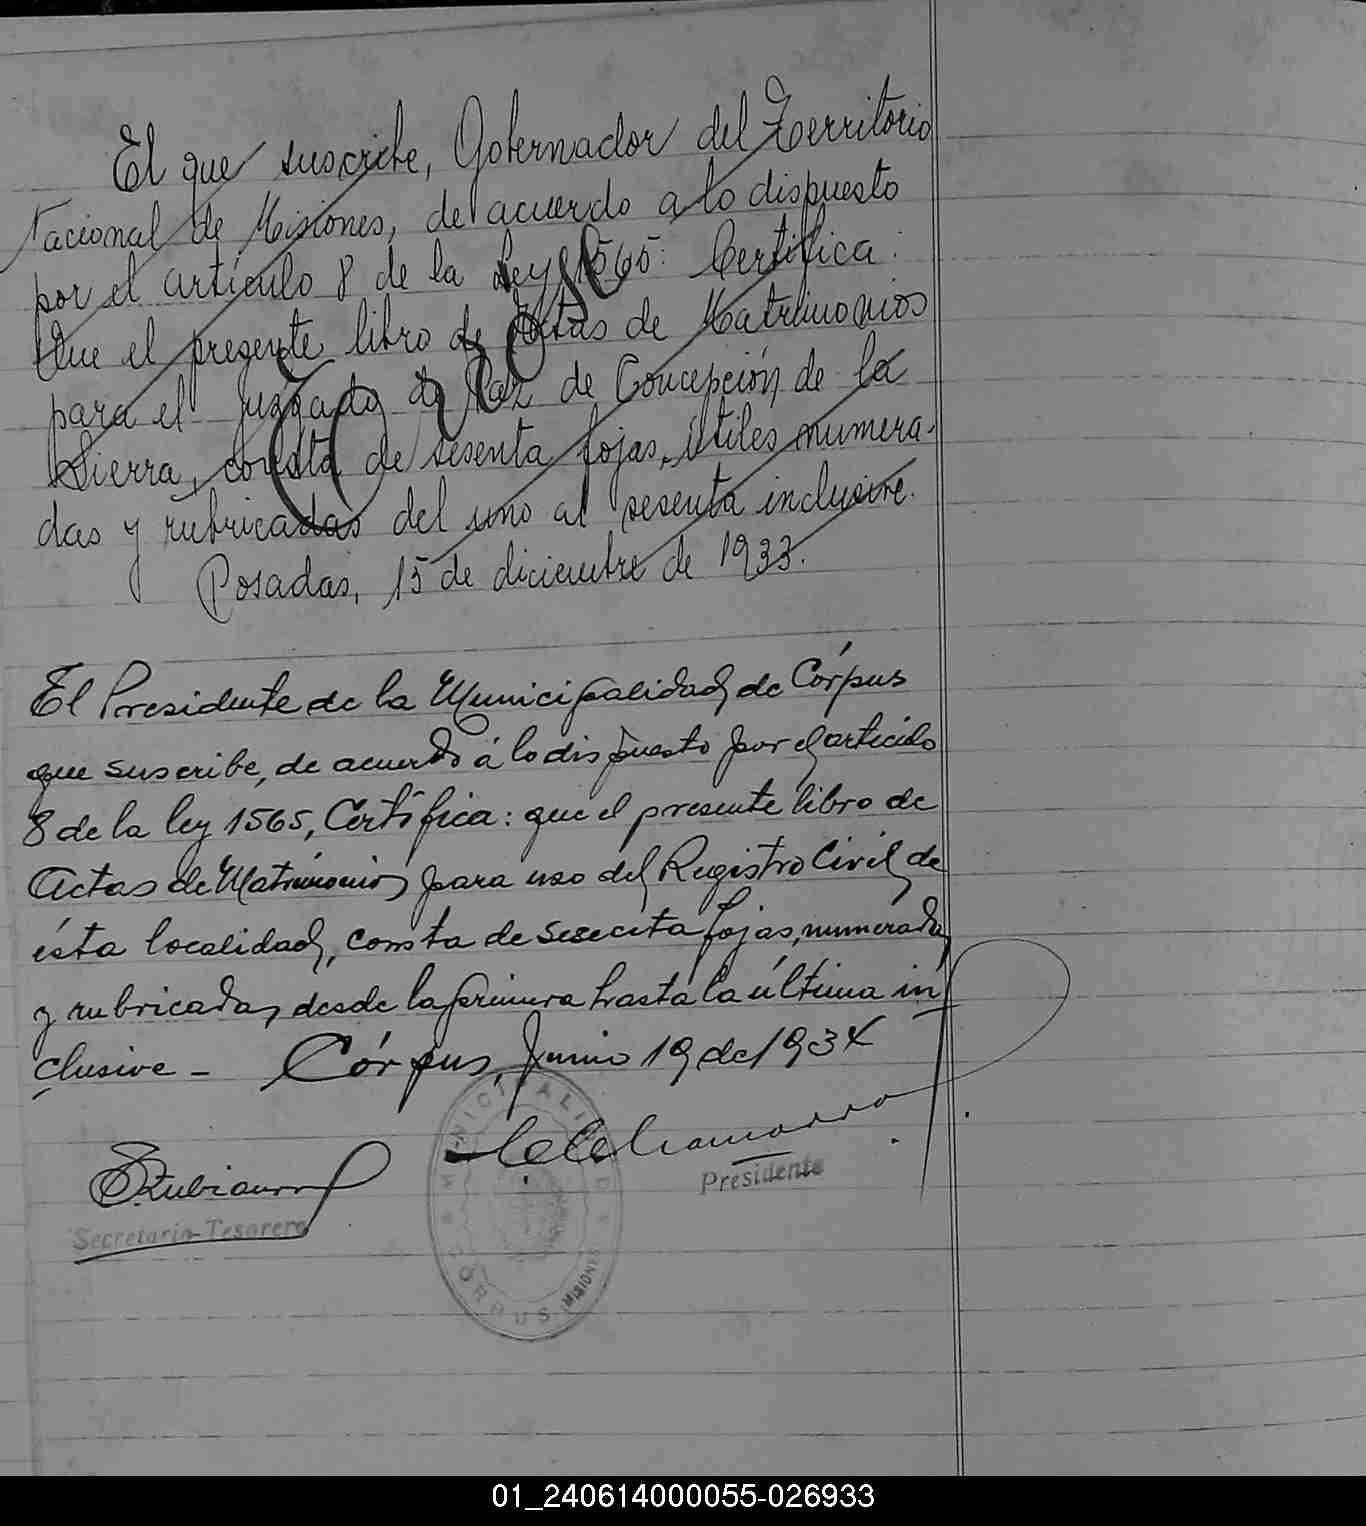 El que suscribe, Gobernador del Territorio
Nacional de Misiones, de acuerdo a lo dispuesto
por el artículo 8 de la Ley 1565: Certifica:
Que el presente libro de Actas de Matrimonios
para el Juzgado de Paz de Concepción de la
Sierra, consta de sesenta fojas útiles numera-
das y rubricadas del uno al sesenta inclusive.
Posadas, 15 de diciembre de 1933.
El Presidente de la Municipalidad de Córpus
que suscribe, de acuerdo á lo dispuesto por el articulo
8 de la ley 1565, Certifica: que el presente libro de
Actas de Matrimonios para uso del Registro Civil de
ésta localidad, consta de sesenta fojas, numeradas
y rubricadas desde la primera hasta la última in
clusive - Córpus, Junio 19 de 1934
Presidente
Secretario-Tesorero
MUNICIPALIDAD
CORPUS (MISIONES)
01_240614000055-026933